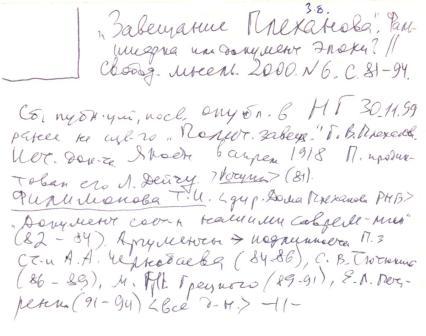 З.В.
"Завещание Плеханова". Фаль-
шивка или документ эпохи? //
Свобод. мысль. 2000. №6. С. 81-94.
Ст. публ-ций, посв. опубл. в НГ 30.11.99
ранее не щего "Полит. завещ." Г.В. Плехан.
Ист. док-та Якобы в апреле 1918 П. продик-
товал его Л. Дейчу (81).
Филимонова Т.И. <дир. Дома Плеханова РНБ>
"Документ сост-н нашими соврем-ми"
(82-84). Аргументы → подлинность П. з
ст-и А.А. Чернобаева (84-86), С.В. Тютюкина
(86-89), М. Грецкого (89-91), Е.Л. Пет-
ренко (91-94) <все д-н.> -//-